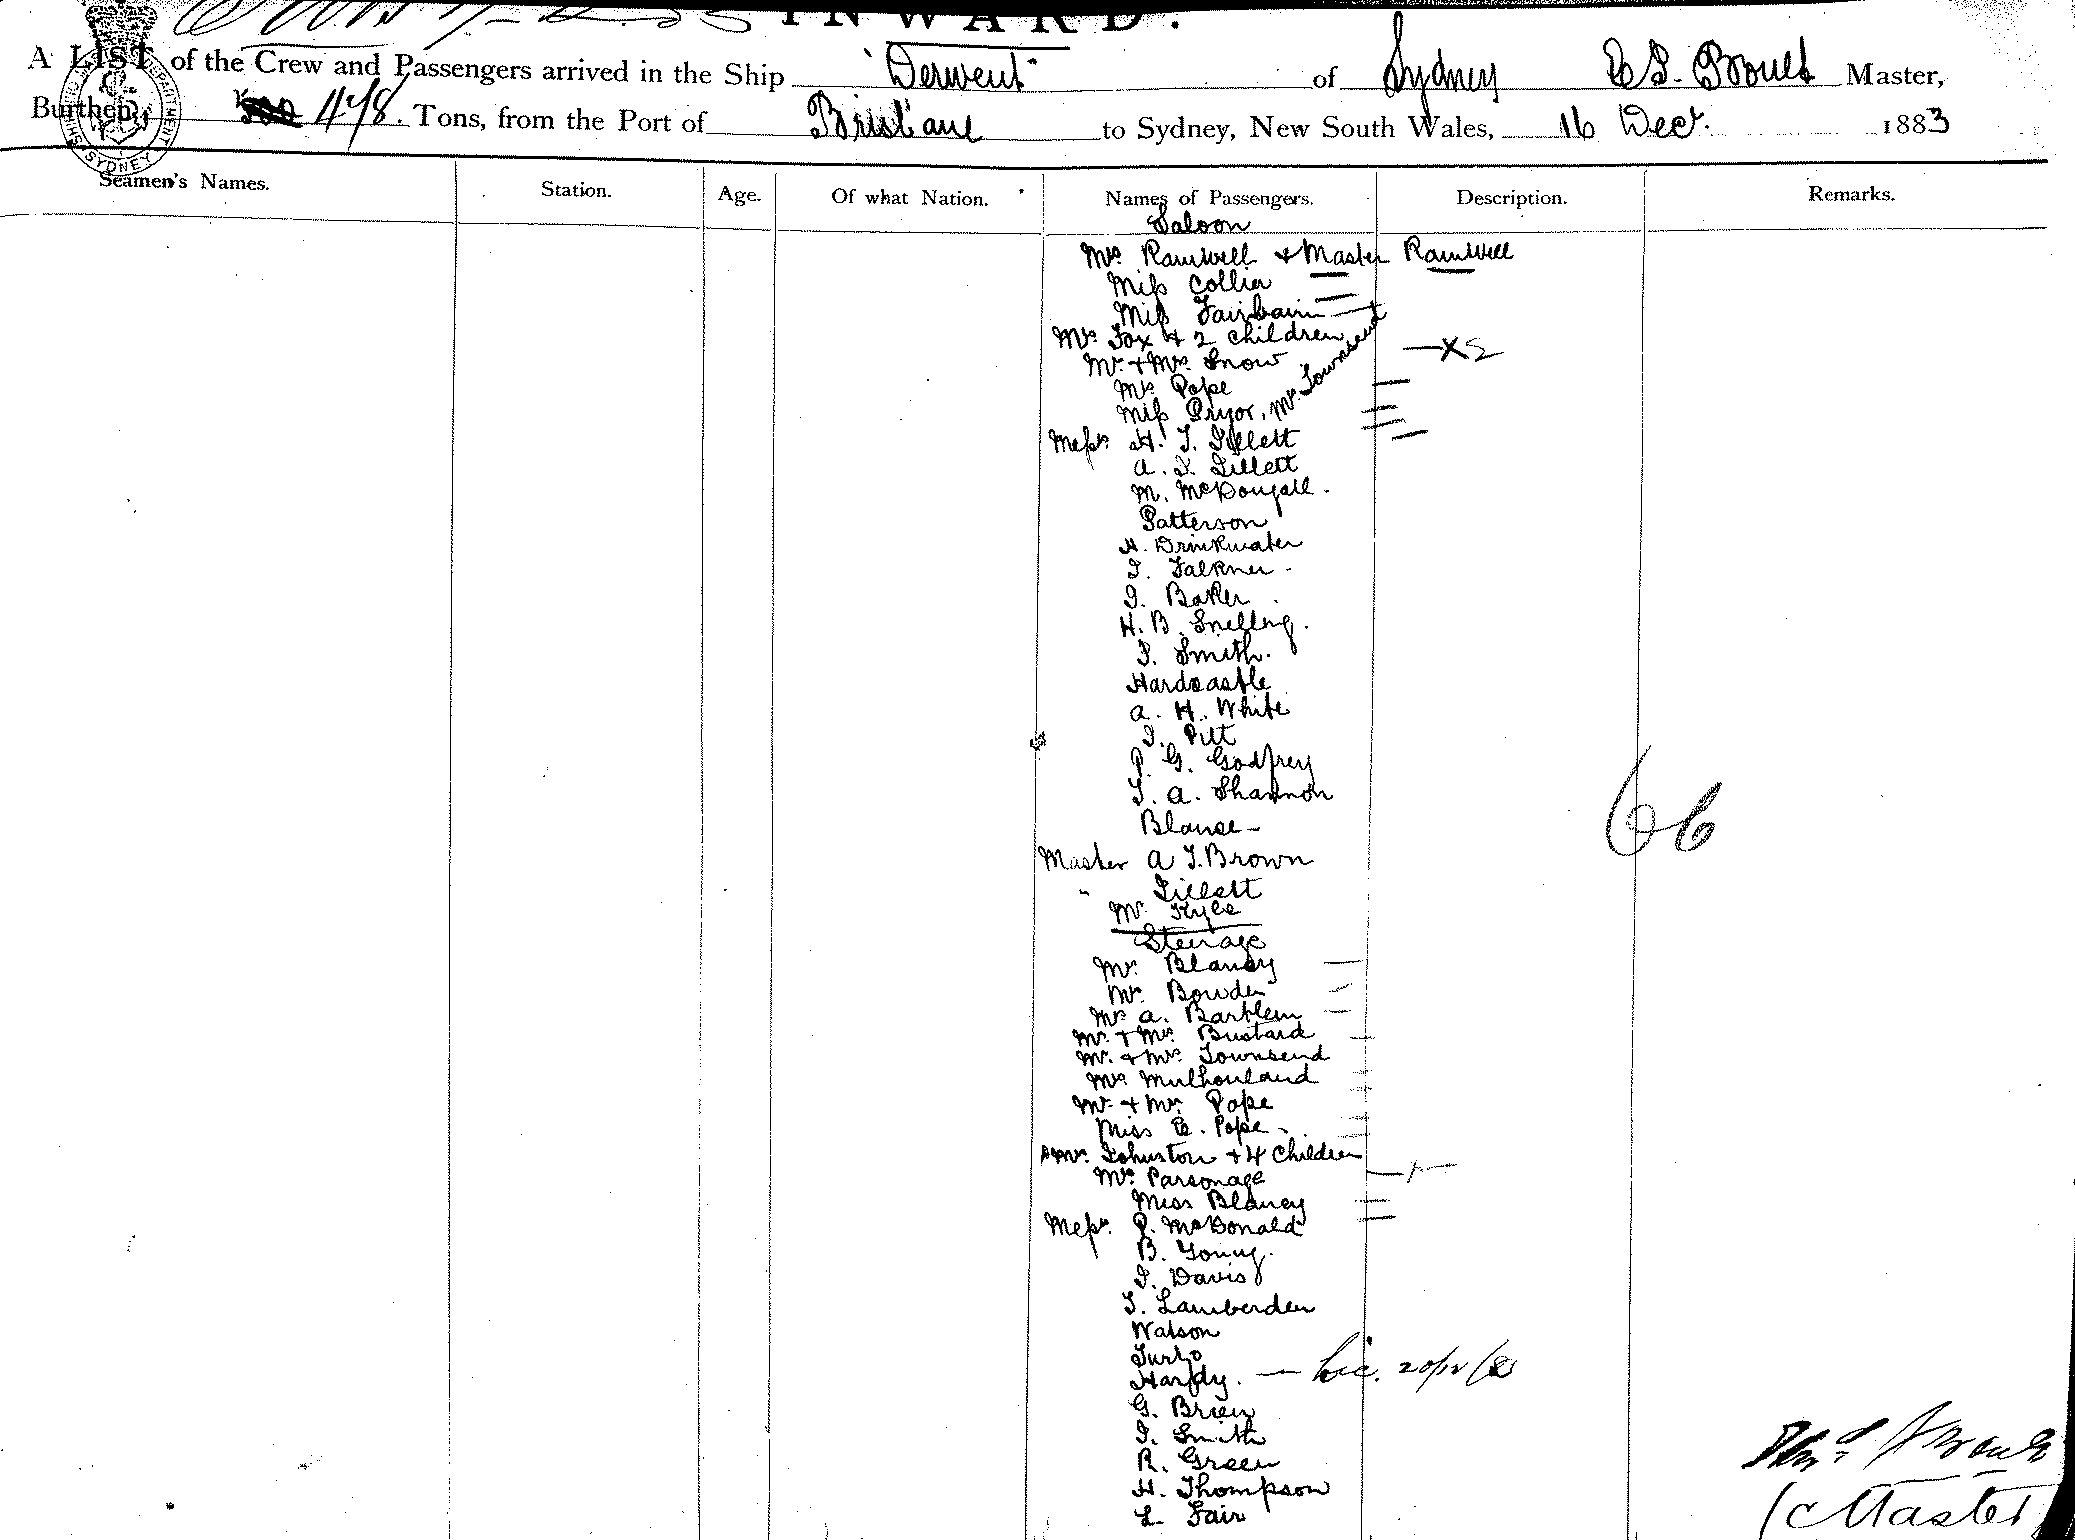 INWARD.
A LIST of the Crew and Passengers arrived in the Ship "Derwent" of Sydney Master,
Burthen 478. Tons, from the Port of Brisbane to Sydney, New South Wales, 16 Decr. 1883
Seamen's Names. Station. Age. Of what Nation. Names of Passengers. Description. Remarks.
Saloon
Mrs Ramwell & Master Ramwell
Miss Collier
Miss Fairbairn
Mrs Fox & 2 children
Mr & Mrs Snow
Mrs Pope
Miss Pryor, Mr Townsend
Messrs H. T. Tillett
A. T. Tillett
M. McDougall.
Patterson
H. Drinkwater
T. Falkner
J. Baker
H. B. Snelling.
J. Smith.
Hardcastle
A. H. White
J. Pitt
P. G. Godfrey
T. A. Shannon
Master A J. Brown
" Tillett
Mr Kyle
Steerage
Mrs. Blaney
Mrs. Bowden
Mrs A. Bartlem
Mr. & Mrs. Bustard
Mr. & Mrs. Townsend
Mrs Mulhouland
Mr. & Mrs Pope
Miss E. Pope
Mrs. Johnston & 4 Children
Mrs. Parsonage
Miss Blaney
Messrs. P. McDonald
B. Young.
J. Davis
T. Lamberden
Watson
Hardy.
G. Brien
J. Smith
R. Green
H. Thompson
L. Fair
66
(Master)